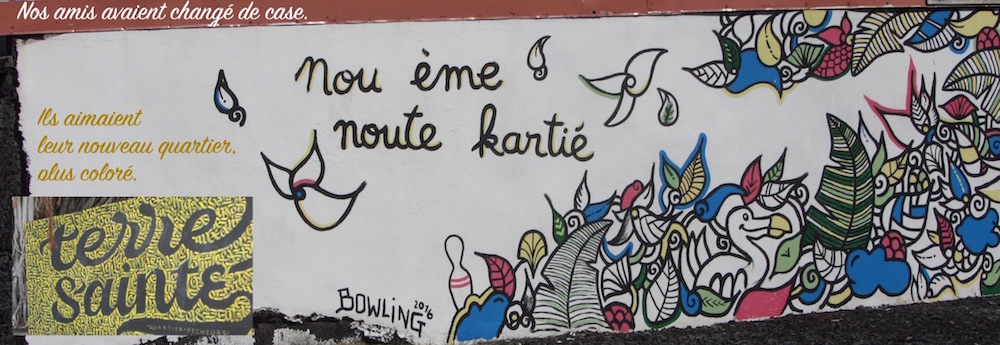 Nos amis avaient changé de case.
Nou ème
noute kartié
Ils aimaient
leur nouveau quartier,
plus coloré.
terre
sainte
QUARTIER PÊCHEURS
BOWLING 2016